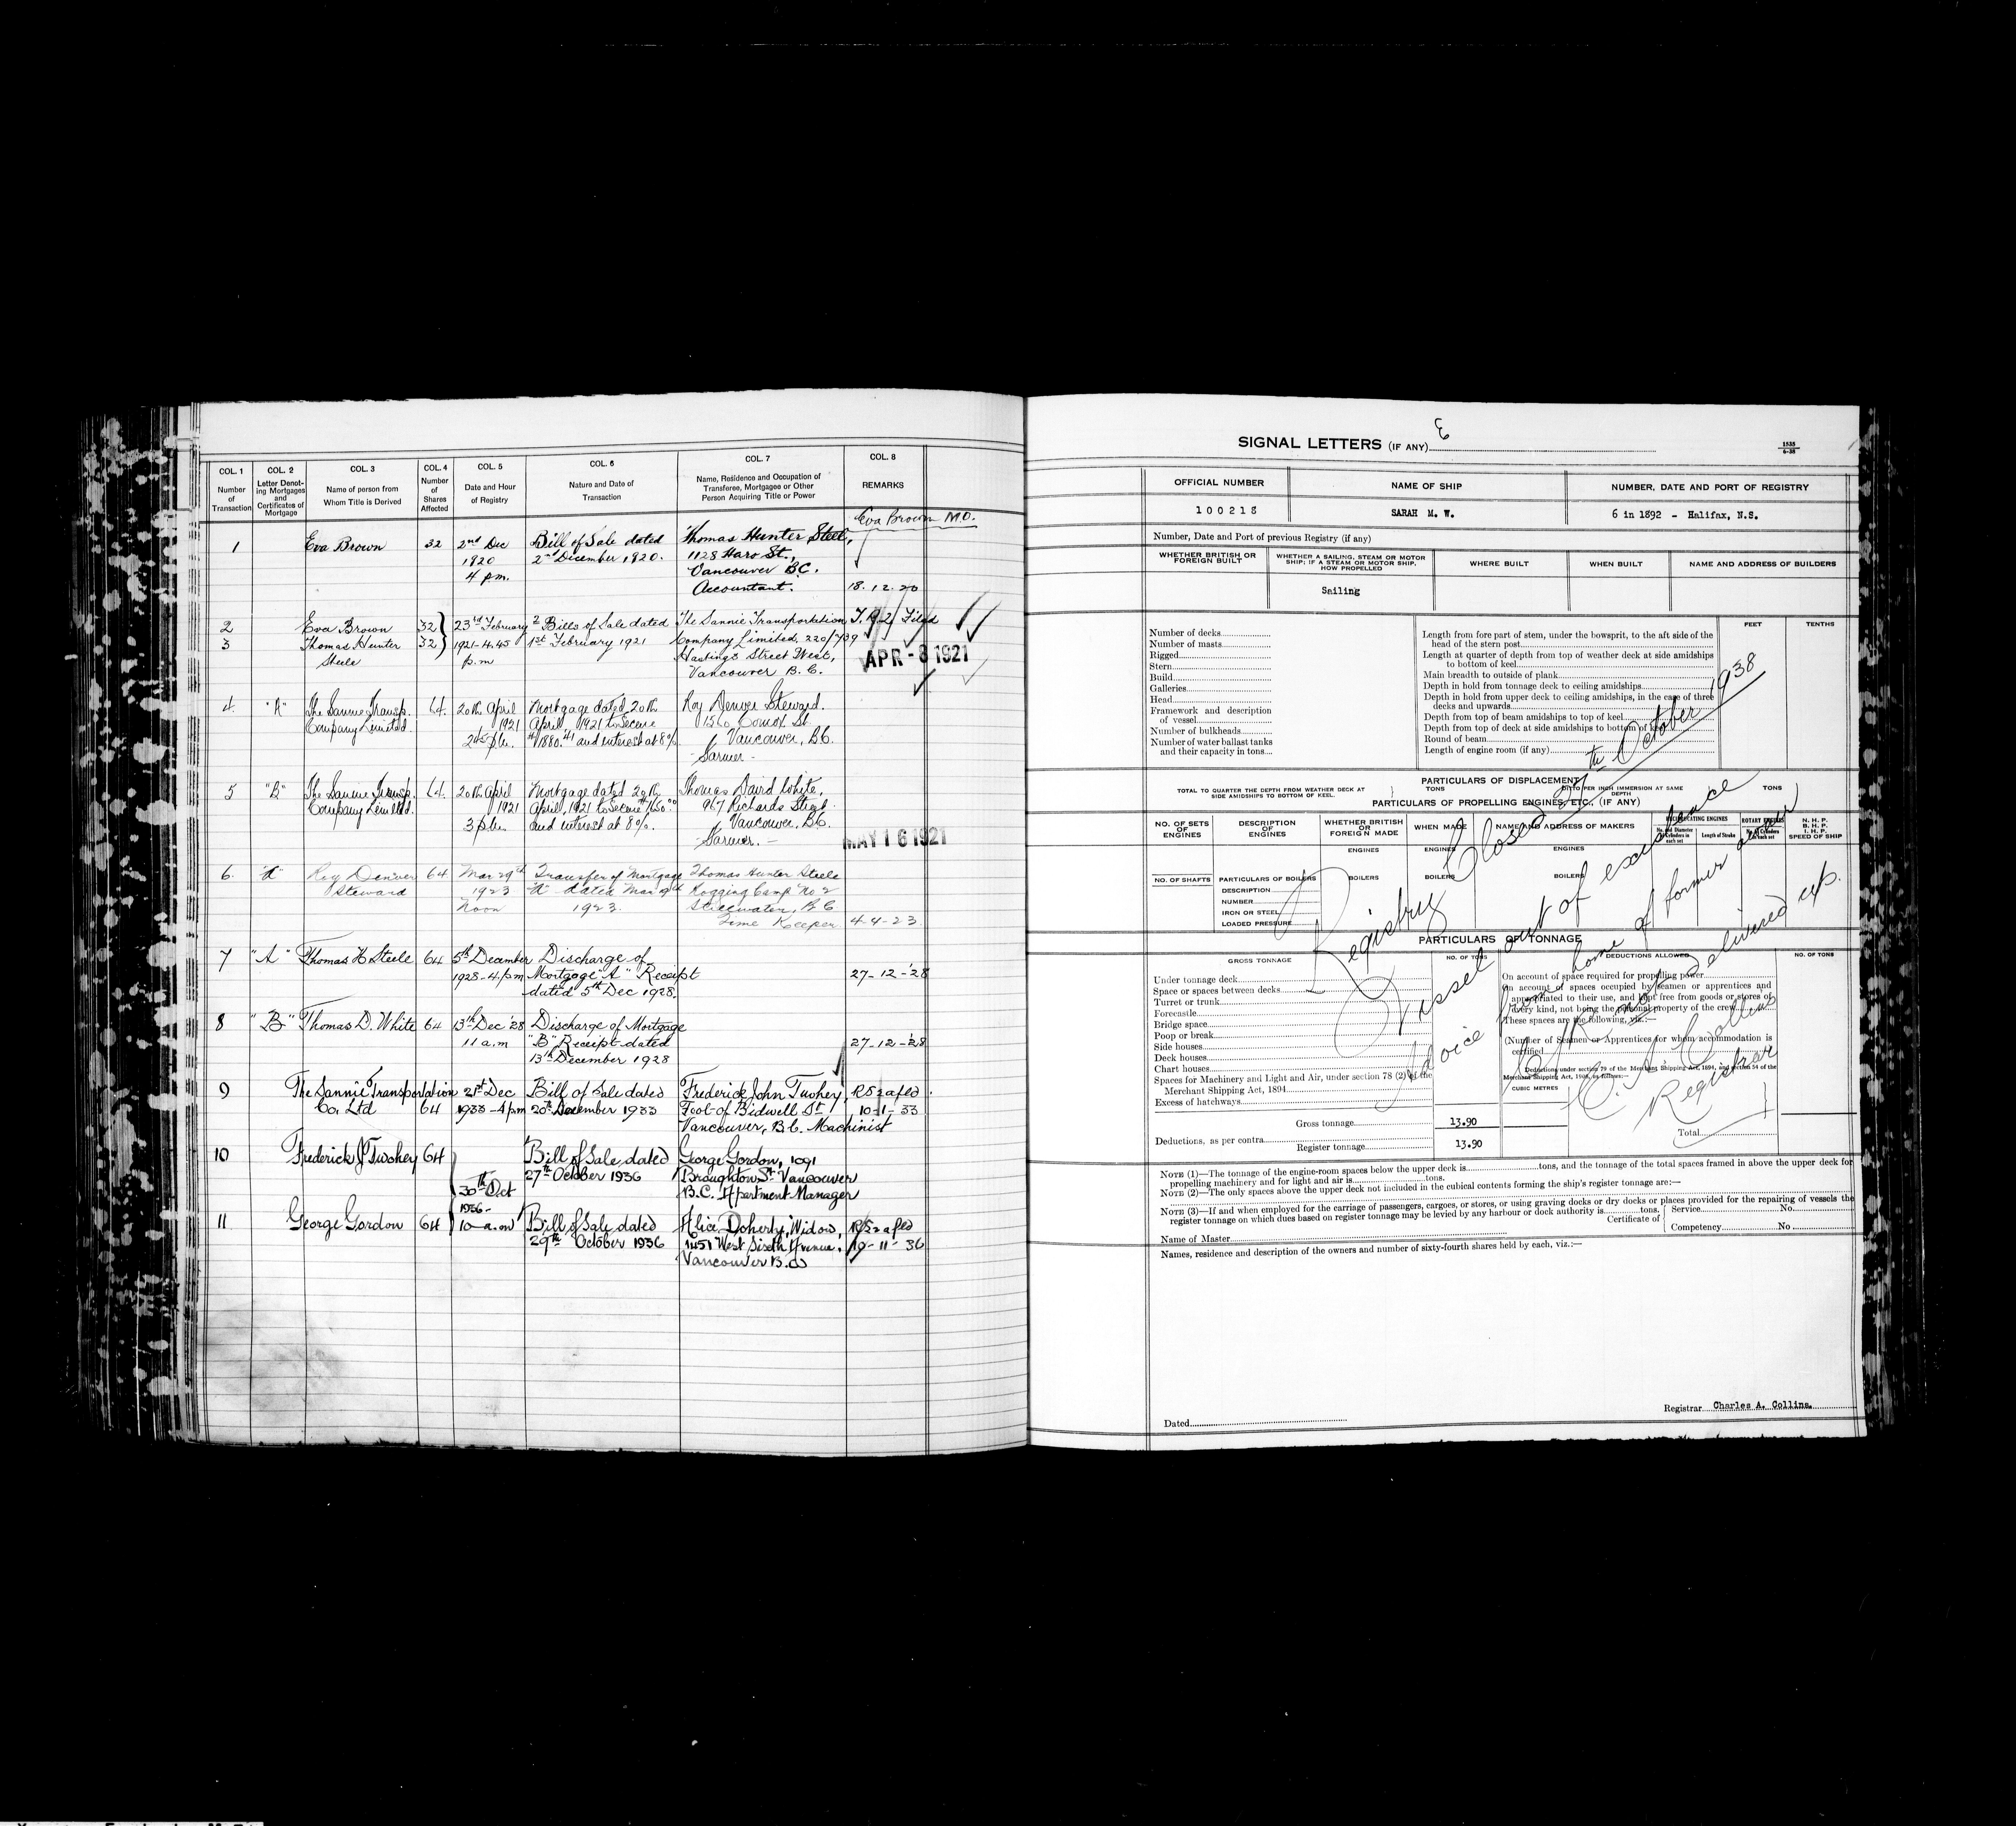 COL. 1 COL. 2 COL. 3 COL. 4 COL. 5 COL. 6 COL. 7 COL. 8
Number of Transaction
Letter Denoting Mortgages and Certificates of Mortgage
Name of person from Whom Title is Derived
Number of Shares Affected
Date and Hour of Registry
Nature and Date of Transaction
Name, Residence and Occupation of Transferee, Mortgagee or Other Person Acquiring Title or Power
REMARKS
Eva Brown M.O.
1 Eva Brown 32 2nd Dec Bill of Sale dated Thomas Hunter Steel,
1920 2nd December 1920. 1128 Haro St.,
4 pm. Vancouver B.C.
Accountant. 18.12.20
2 Eva Brown 32 23rd February 2 Bills of Sale dated The Dannie Transportation Filed
3 Thomas Hunter 32 1921-4.45 1st February 1921 Company Limited, 220/739
Steele p.m Hastings Street West,
Vancouver B.C.
APR - 8 1921
4. "A" The Dannie Transp. 64. 20th April Mortgage dated 20th Roy Denver Steward.
Company Limited. 1921 April 1921 to secure 1560 Comox St
245 p.m. $1880.41 and interest at 8% Vancouver, B.C.
Farmer -
5 "B" The Dannie Transp. 64. 20th April Mortgage dated 20th Thomas David White,
Company Limited. 1921 April, 1921 to secure $1650.00 967 Richards Street.
3 p.m. and interest at 8%. Vancouver, B.C.
Farmer. -
MAY 16 1921
6. "A" Roy Denver 64 Mar 29th Transfer of Mortgage Thomas Hunter Steele
Steward 1923 "A" dated Mar 9th Logging Camp No 2
Noon 1923. Stillwater, B.C
Time Keeper 4-4-23
7 "A" Thomas H Steele 64 5th December Discharge of
1928-4 pm Mortgage "A" Receipt 27-12-'28
dated 5th Dec 1928.
8 "B" Thomas D. White 64 13th Dec '28 Discharge of Mortgage
11 a.m "B" Receipt dated 27-12-'28
13th December 1928
9 The Dannie Transportation 21st Dec Bill of Sale dated Frederick John Twohey,
Co. Ltd 64 1933-4 pm 20th December 1933 Foot of Bidwell St 10-1-33
Vancouver, B.C. Machinist
10 Frederick J Twohey 64 Bill of Sale dated George Gordon, 1091
27th October 1936 Broughton St Vancouver
30th Oct B.C. Apartment Manager
1936-
11 George Gordon 64 10-a.m Bill of Sale dated Alice Doherty, Widow,
29th October 1936 1451 West Sixth Avenue, 19-11-36
Vancouver B.C.
SIGNAL LETTERS (IF ANY)
1535
6-38
OFFICIAL NUMBER NAME OF SHIP NUMBER, DATE AND PORT OF REGISTRY
100218 SARAH M. W. 6 in 1892 - Halifax, N.S.
Number, Date and Port of previous Registry (if any)
WHETHER BRITISH OR FOREIGN BUILT
WHETHER A SAILING, STEAM OR MOTOR SHIP; IF A STEAM OR MOTOR SHIP, HOW PROPELLED
WHERE BUILT WHEN BUILT NAME AND ADDRESS OF BUILDERS
Sailing
FEET TENTHS
Number of decks
Number of masts
Rigged
Stern
Build
Galleries
Head
Framework and description
of vessel
Number of bulkheads
Number of water ballast tanks
and their capacity in tons
Length from fore part of stem, under the bowsprit, to the aft side of the
head of the stern post
Length at quarter of depth from top of weather deck at side amidships
to bottom of keel
Main breadth to outside of plank
Depth in hold from tonnage deck to ceiling amidships
Depth in hold from upper deck to ceiling amidships, in the case of three
decks and upwards
Depth from top of beam amidships to top of keel
Depth from top of deck at side amidships to bottom of keel
Round of beam
Length of engine room (if any)
PARTICULARS OF DISPLACEMENT
TOTAL TO QUARTER THE DEPTH FROM WEATHER DECK AT
SIDE AMIDSHIPS TO BOTTOM OF KEEL.
TONS
DITTO PER INCH IMMERSION AT SAME
DEPTH
TONS
PARTICULARS OF PROPELLING ENGINES, ETC., (IF ANY)
NO. OF SETS OF ENGINES
DESCRIPTION OF ENGINES
WHETHER BRITISH OR FOREIGN MADE
WHEN MADE
NAME AND ADDRESS OF MAKERS
RECIPROCATING ENGINES
No. and Diameter of Cylinders in each set
Length of Stroke
ROTARY ENGINES
No. of Cylinders in each set
N. H. P.
B. H. P.
I. H. P.
SPEED OF SHIP
ENGINES ENGINES ENGINES
NO. OF SHAFTS PARTICULARS OF BOILERS BOILERS BOILERS BOILERS
DESCRIPTION
NUMBER
IRON OR STEEL
LOADED PRESSURE
Registry Closed 27th October 1938
Vessel out of existence
Advice from home of former owner
C/R not delivered up.
C. A. Collins
Registrar
PARTICULARS OF TONNAGE
GROSS TONNAGE NO. OF TONS DEDUCTIONS ALLOWED NO. OF TONS
Under tonnage deck
Space or spaces between decks
Turret or trunk
Forecastle
Bridge space
Poop or break
Side houses
Deck houses
Chart houses
Spaces for Machinery and Light and Air, under section 78 (2) of the
Merchant Shipping Act, 1894
Excess of hatchways
Gross tonnage 13.90
Deductions, as per contra
Register tonnage 13.90
On account of space required for propelling power
On account of spaces occupied by seamen or apprentices and
appropriated to their use, and kept free from goods or stores of
every kind, not being the personal property of the crew
These spaces are the following, viz.:—
(Number of Seamen or Apprentices for whom accommodation is
certified
Deductions under section 79 of the Merchant Shipping Act, 1894, and section 54 of the
Merchant Shipping Act, 1906, as follows:—
CUBIC METRES
Total
NOTE (1)—The tonnage of the engine-room spaces below the upper deck is tons, and the tonnage of the total spaces framed in above the upper deck for
propelling machinery and for light and air is tons.
NOTE (2)—The only spaces above the upper deck not included in the cubical contents forming the ship's register tonnage are:—
NOTE (3)—If and when employed for the carriage of passengers, cargoes, or stores, or using graving docks or dry docks or places provided for the repairing of vessels the
register tonnage on which dues based on register tonnage may be levied by any harbour or dock authority is tons.
Certificate of Service No.
Competency No
Name of Master
Names, residence and description of the owners and number of sixty-fourth shares held by each, viz.:—
Dated
Registrar Charles A. Collins.